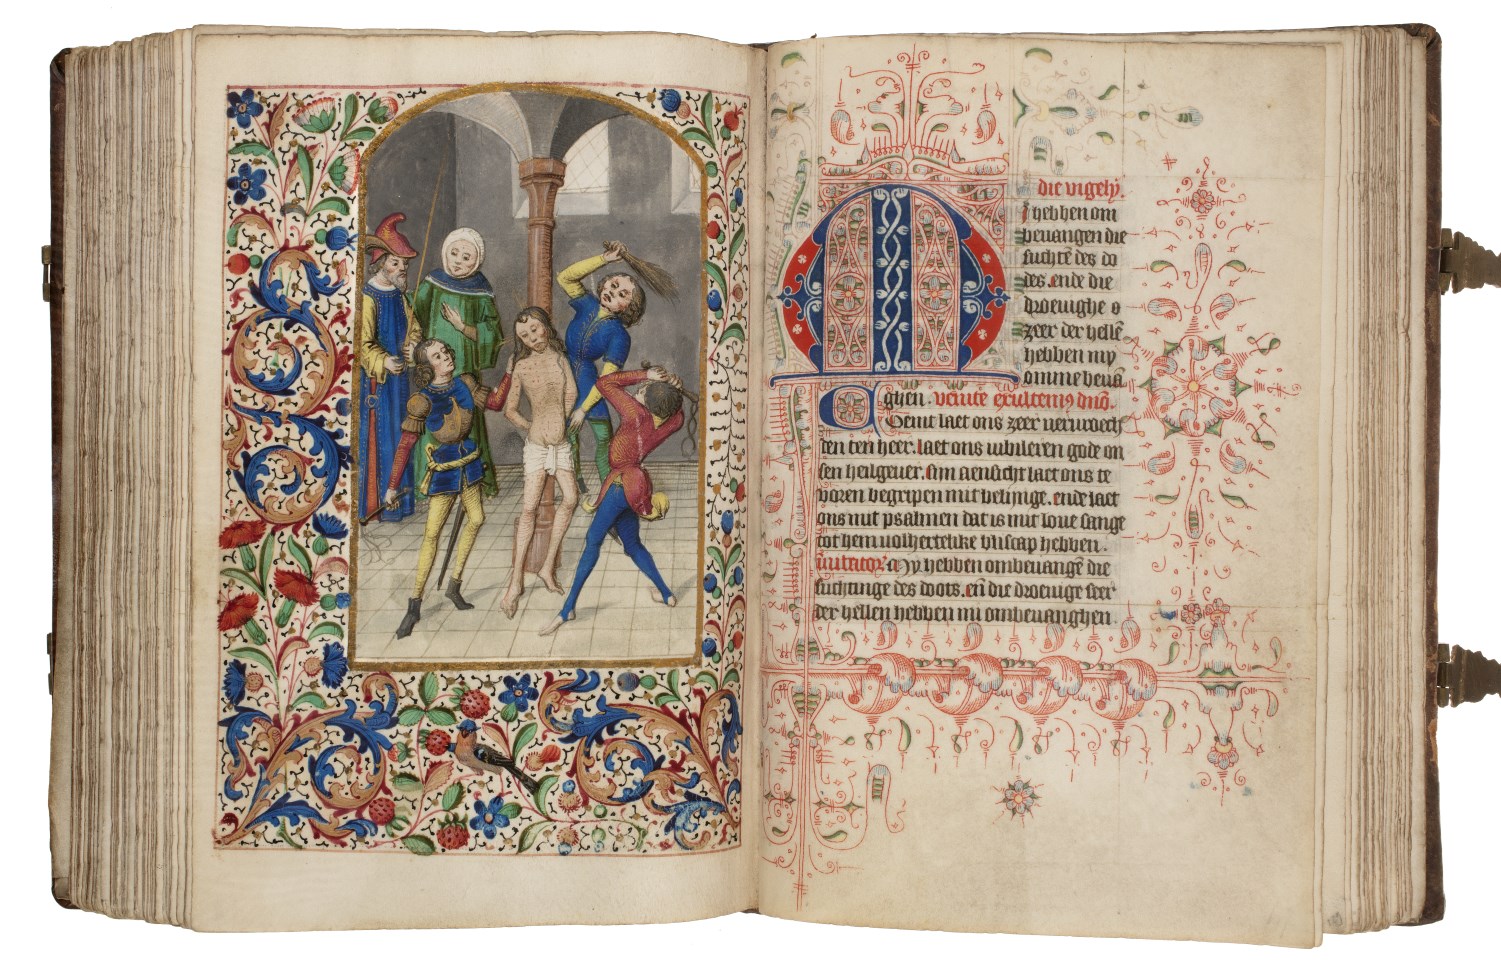 die vigely.
M
I hebben om
beuangen die
suchtē des do
des. ende die
droeuighe o
zeer der hellē
hebben my
omme beuā
ghen. venite exultem9 dnō.
Comt laet ons zeer verurοech
den ten heer. laet ons iubileren gode on
sen heilgeuer. sijn aensicht laet ons te
voren begripen mit belijnge. ende laet
ons mit psalmen dat is mit loue sange
tot hem volhertelike bliscap hebben.
inuitator. My hebben ombeuangē die
suchtinge des doots. eñ die droeuige seer
der hellen hebben mi ombeuanghen.